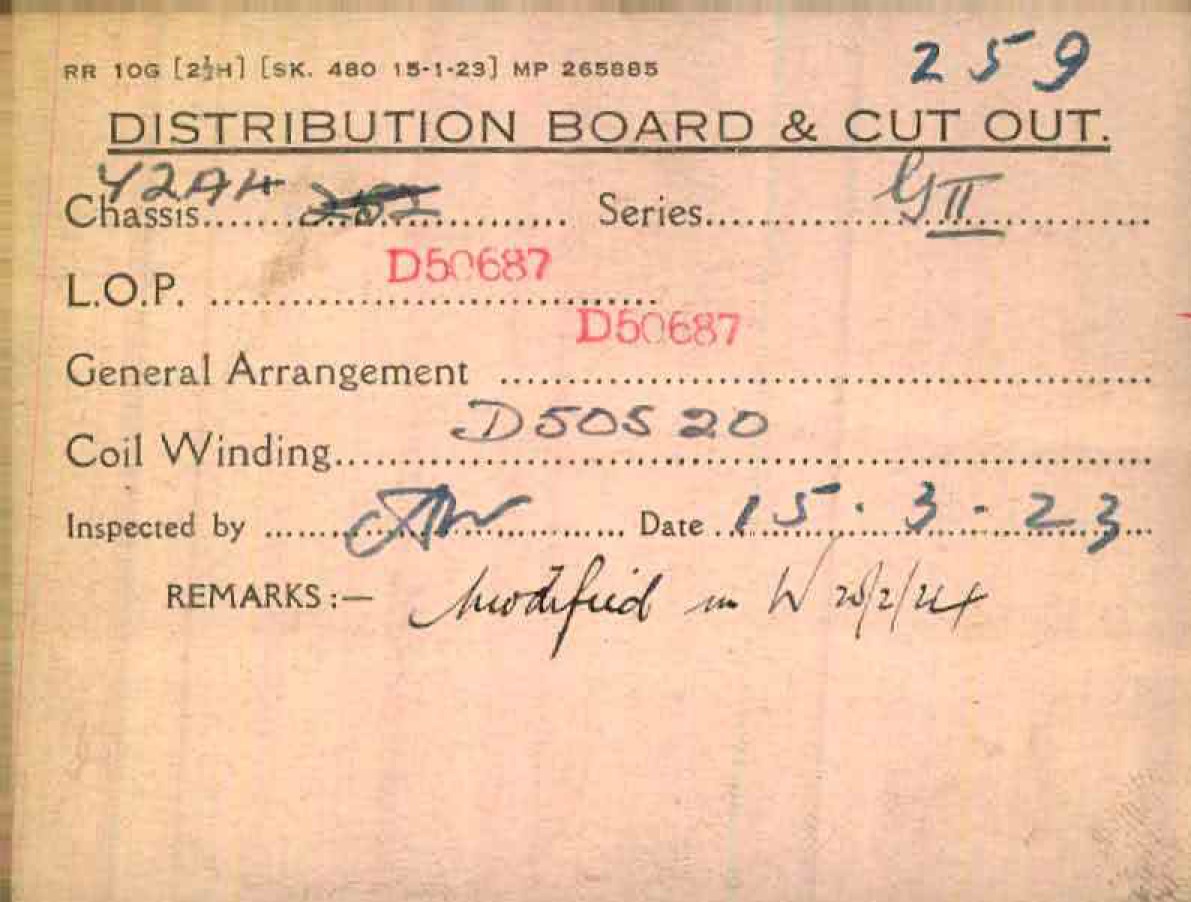 RR 10G [2½H] [SK. 480 15-1-23] MP 265885
259
DISTRIBUTION BOARD & CUT OUT.
Chassis 42AH Series GII
L.O.P. D50687
D50687
General Arrangement
Coil Winding D50520
Inspected by Date 15.3-23
REMARKS:— Modified in W 20/2/24